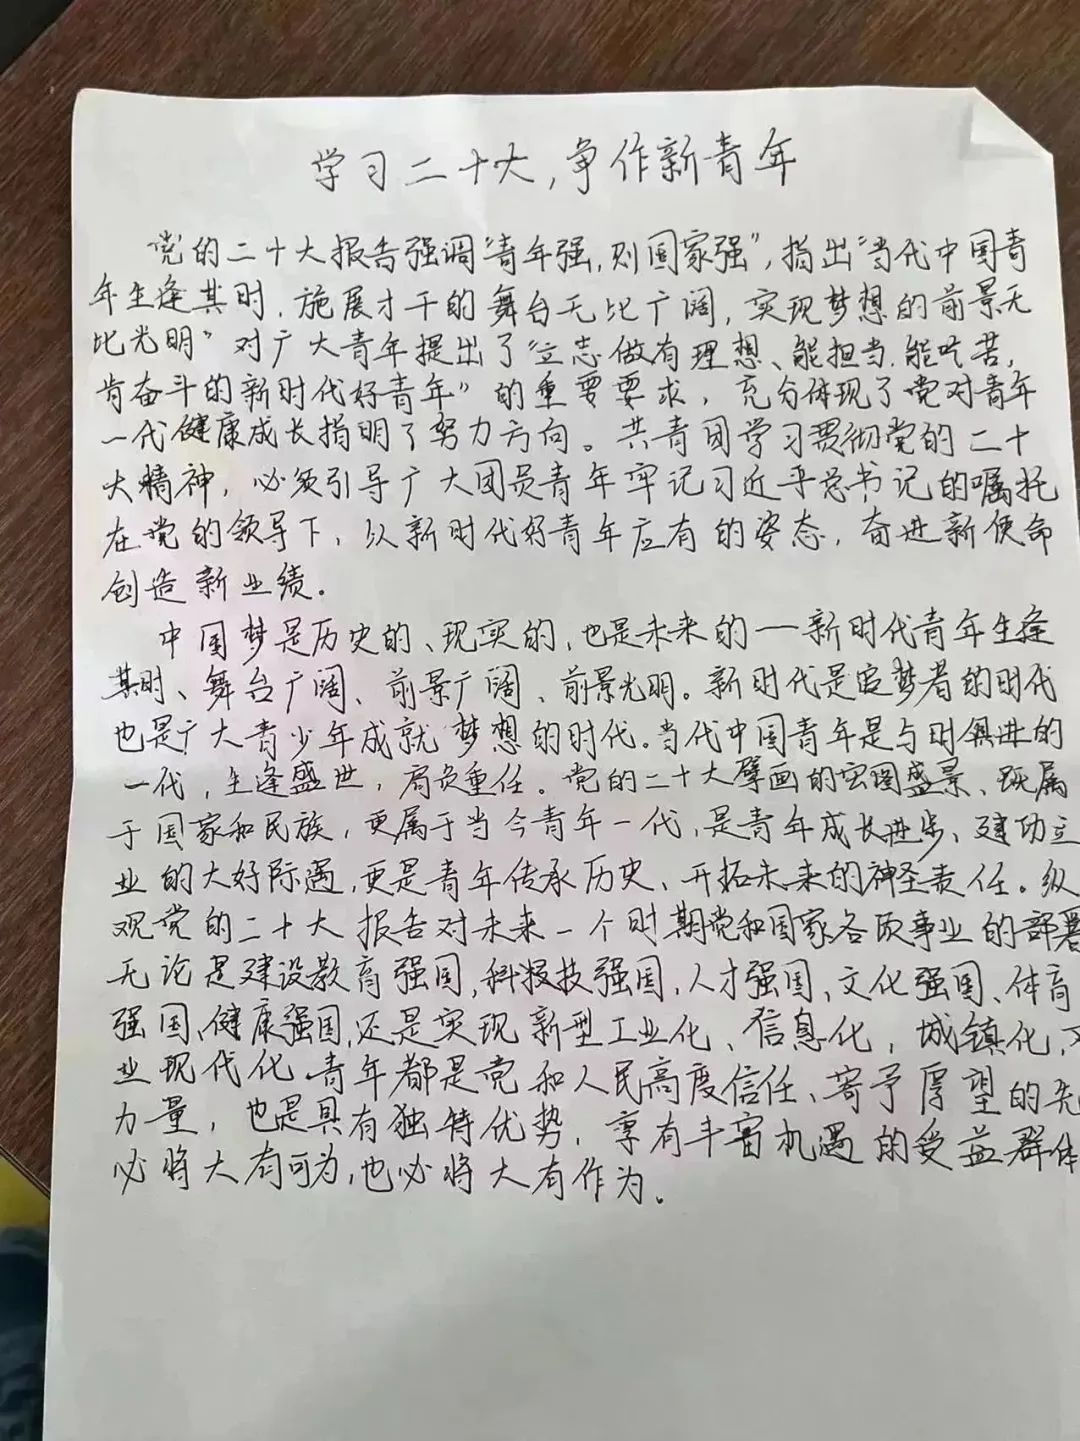 学习二十大，争作新青年
党的二十大报告强调"青年强，则国家强"，指出"当代中国青
年生逢其时，施展才干的舞台无比广阔，实现梦想的前景无
比光明"对广大青年提出了"立志做有理想、能担当、能吃苦，
肯奋斗的新时代好青年"的重要要求，充分体现了党对青年
一代健康成长指明了努力方向。共青团学习贯彻党的二十
大精神，必须引导广大团员青年牢记习近平总书记的嘱托
在党的领导下，以新时代好青年应有的姿态，奋进新使命
创造新业绩。
中国梦是历史的、现实的，也是未来的一新时代青年生逢
其时、舞台广阔、前景广阔、前景光明。新时代是追梦者的时代
也是广大青少年成就梦想的时代。当代中国青年是与时俱进的
一代，生逢盛世，肩负重任。党的二十大擘画的宏图盛景、既属
于国家和民族，更属于当今青年一代，是青年成长进步、建功立
业的大好际遇，更是青年传承历史、开拓未来的神圣责任。纵
观党的二十大报告对未来一个时期党和国家各项事业的部署
无论是建设教育强国，科技强国，人才强国、文化强国、体育
强国、健康强国，还是实现新型工业化、信息化，城镇化，
业现代化。青年都是党和人民高度信任、寄予厚望的先
力量，也是具有独特优势，享有丰富机遇的受益群体
必将大有可为，也必将大有作为。